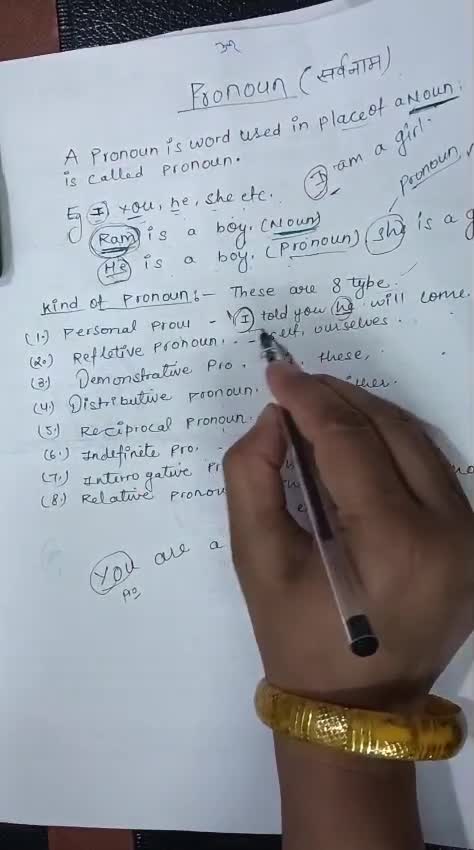 Pronoun (सर्वनाम)
A Pronoun is word used in place of a Noun.
is called Pronoun.
Eg I, you, he, she etc. I am a girl.
Ram is a boy. (Noun) Pronoun
He is a boy. (Pronoun) She is a
kind of Pronoun:- These are 8 type.
(1.) Personal Proun - I told you he will come.
(2.) Refletive Pronoun. - self, ourselves.
(3) Demonstrative Pro. these,
(4) Distributive pronoun.
(5.) Reciprocal Pronoun.
(6.) Indefinite Pro. -
(7.) Interrogative
(8.) Relative
You are a